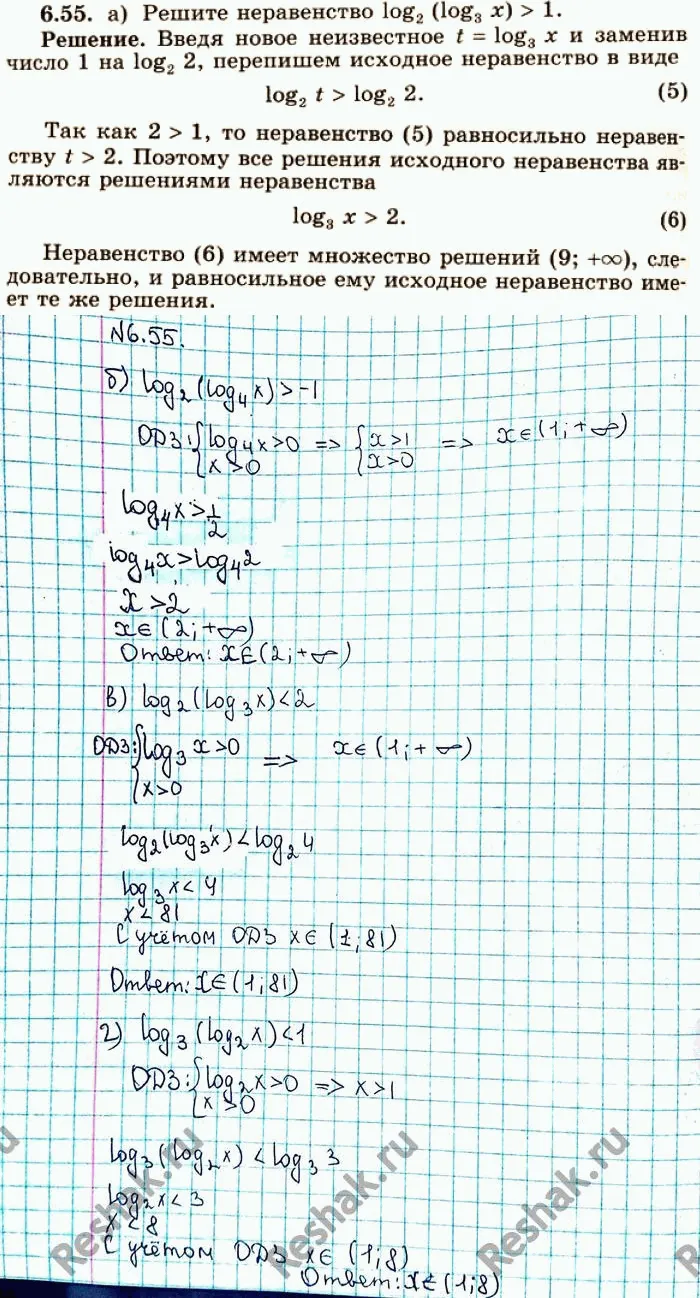 6.55. а) Решите неравенство log₂ (log₃ x) > 1.
Решение. Введя новое неизвестное t = log₃ x и заменив
число 1 на log₂ 2, перепишем исходное неравенство в виде
log₂ t > log₂ 2. (5)
Так как 2 > 1, то неравенство (5) равносильно неравен-
ству t > 2. Поэтому все решения исходного неравенства яв-
ляются решениями неравенства
log₃ x > 2. (6)
Неравенство (6) имеет множество решений (9; +∞), сле-
довательно, и равносильное ему исходное неравенство име-
ет те же решения.
N6.55.
б) log₂(log₄x)>-1
ОДЗ: {log₄x>0 => {x>1 => x∈(1;+∞)
x>0 x>0
log₄x>1/2
log₄x>log₄2
x>2
x∈(2;+∞)
Ответ: x∈(2;+∞)
в) log₂(log₃x)<2
ОДЗ: {log₃x>0 => x∈(1;+∞)
x>0
log₂(log₃x)<log₂4
log₃x<4
x<81
С учётом ОДЗ x∈(1;81)
Ответ: x∈(1;81)
г) log₃(log₂x)<1
ОДЗ: {log₂x>0 => x>1
x>0
log₃(log₂x)<log₃3
log₂x<3
x<8
С учётом ОДЗ x∈(1;8)
Ответ: x∈(1;8)
Reshak.ru
Reshak.ru
Reshak.ru